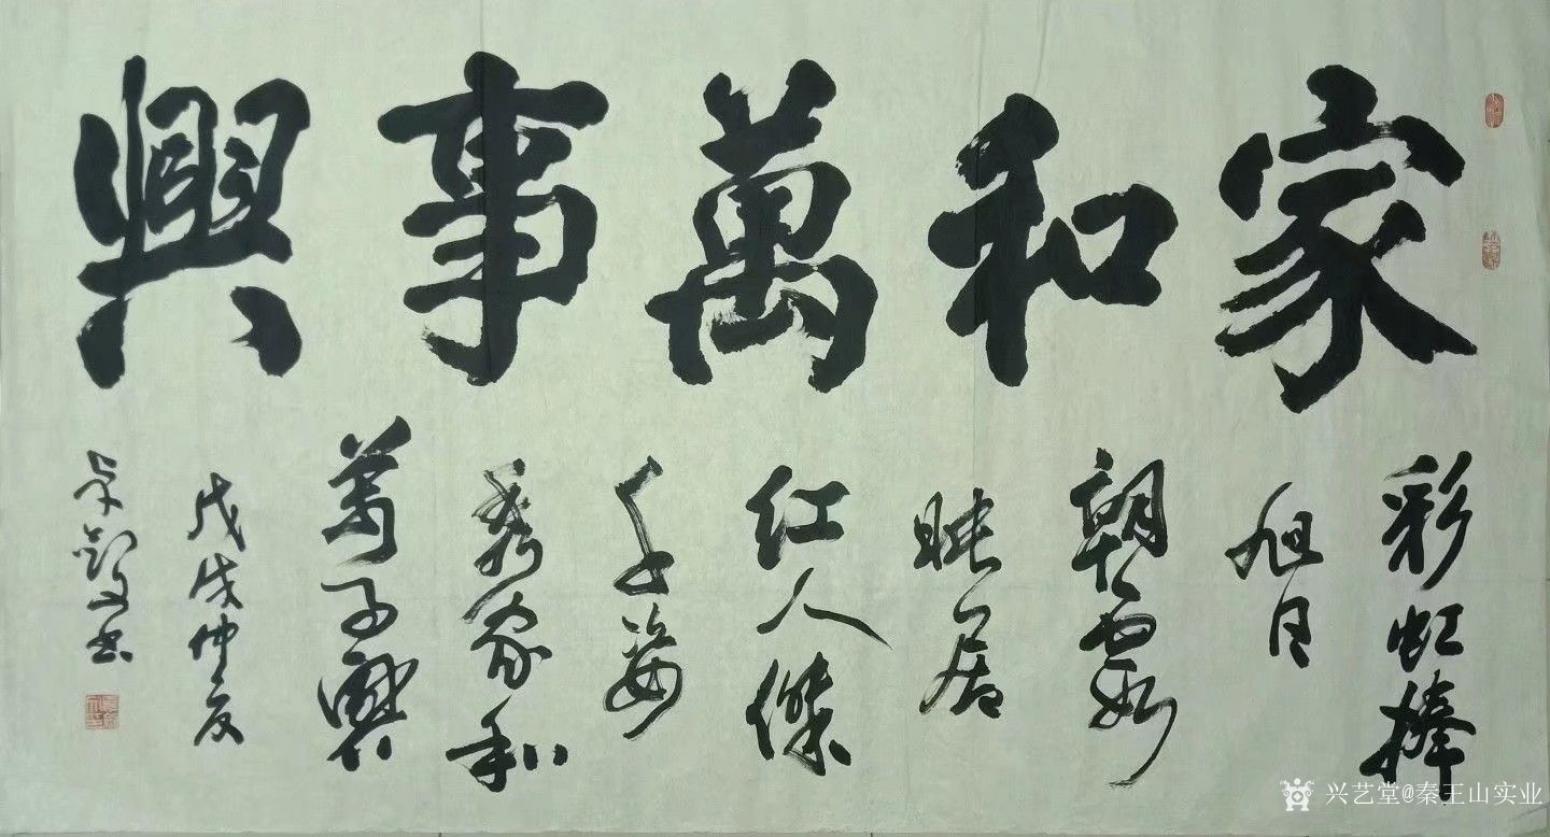 家和萬事興
彩虹捧
旭日
朝霞
映居
红人傑
千姿
秀家和
萬事興
戊戌仲夏
兴艺堂@秦王山实业